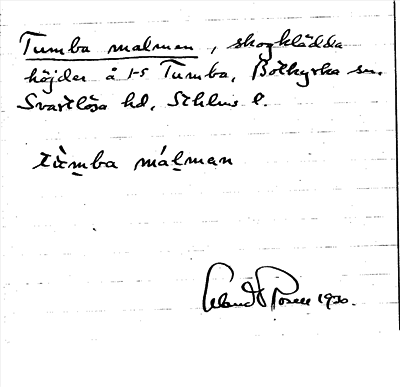 Tumba malmen, skogklädda
höjder å 1-5 Tumba, Botkyrka sn.
Svartlösa hd, Sthlms l.
tùmba málman
1930.